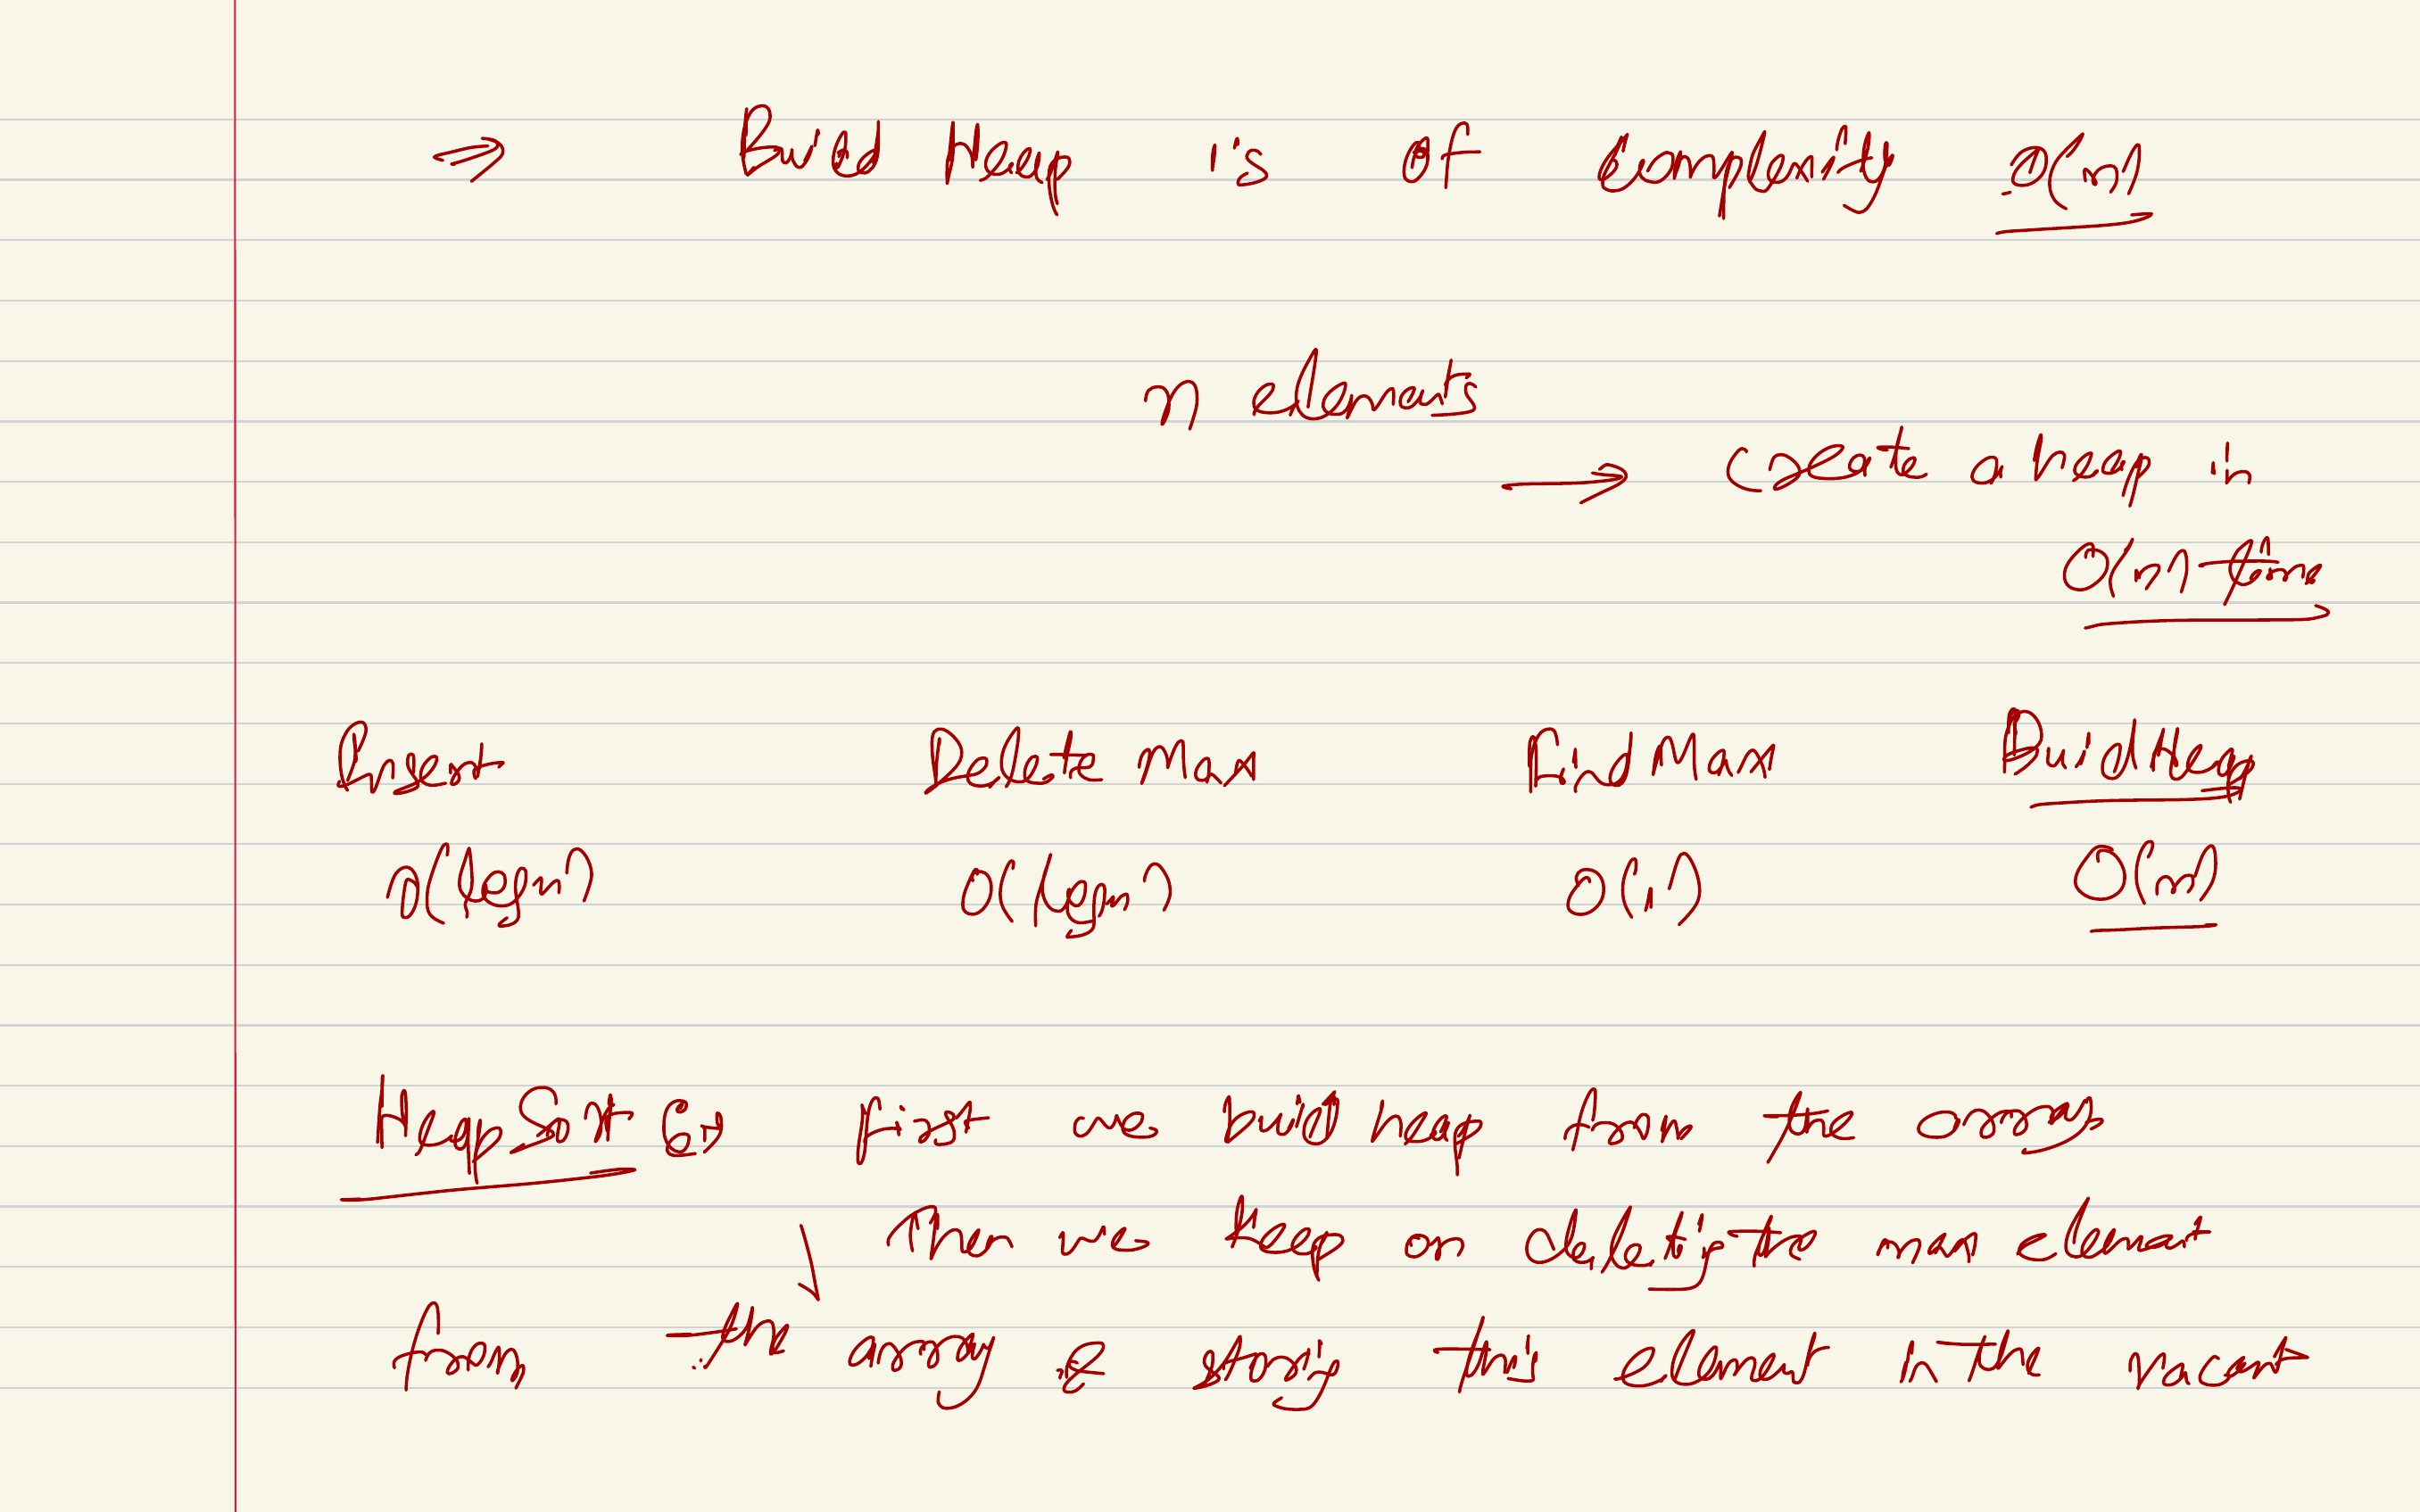 ⇒ Build Heap is of Complexity O(n)
n elements
→ Create a heap in
O(n) time
Insert Delete Max Find Max Build Heap
O(log n) O(log n) O(1) O(n)
Heap Sort first we build heap from the array
Then we keep on deleting the max element
from the array & storing this element in the vacant